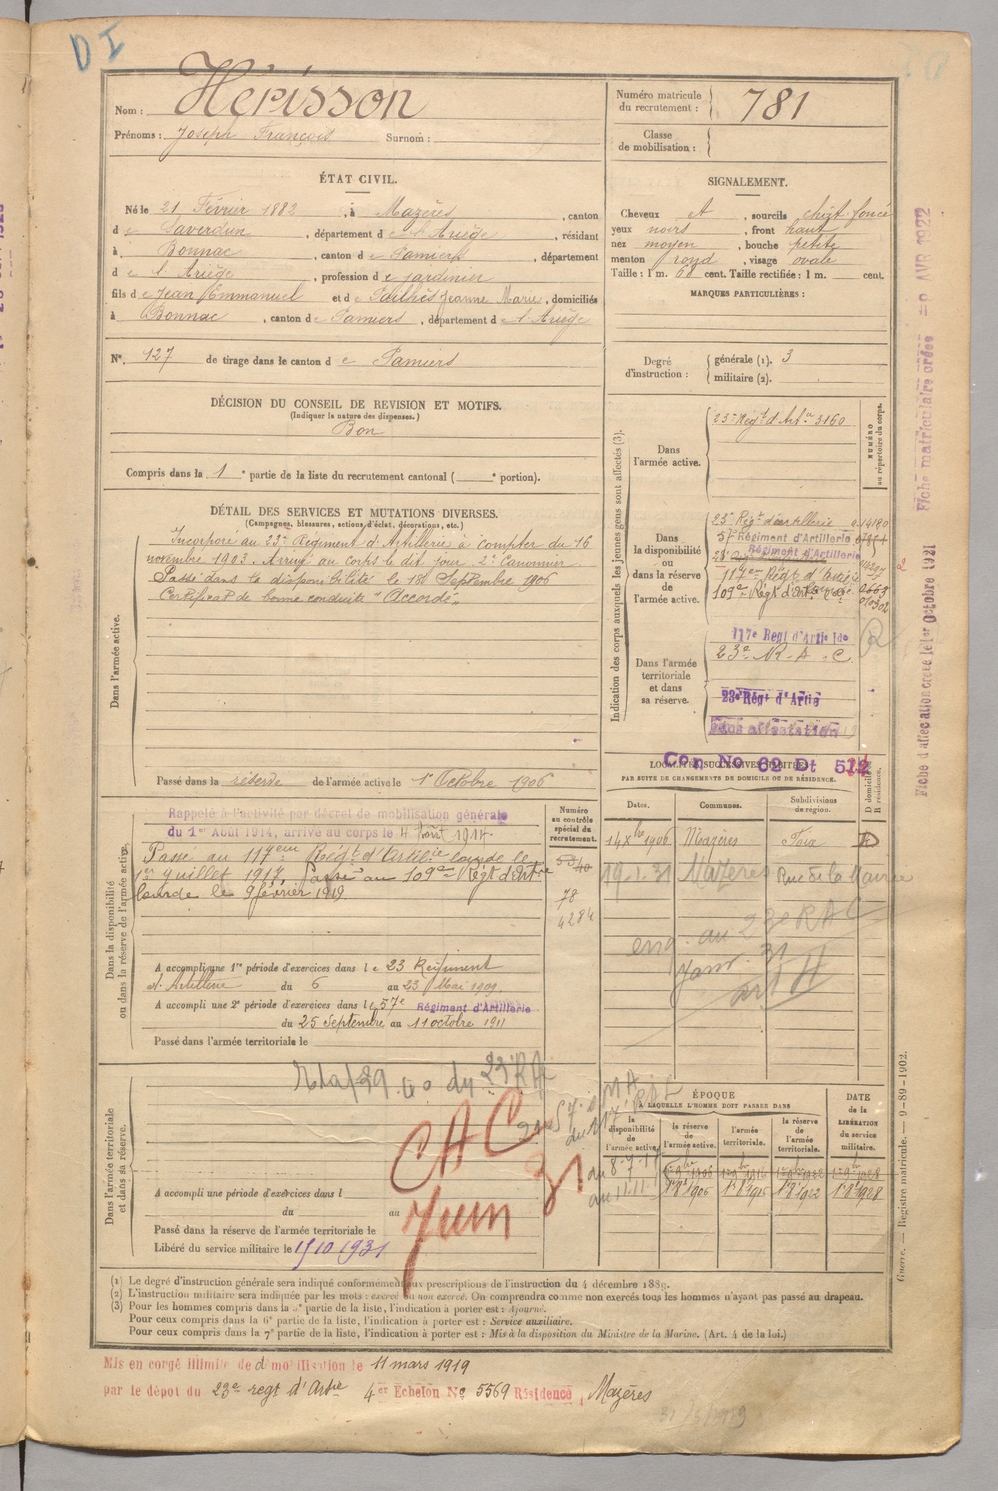 D I
Nom : Hérisson
Prénoms : Joseph François Surnom :
Numéro matricule du recrutement : 781
Classe de mobilisation :
ÉTAT CIVIL.
Né le 21 Février 1882, à Mazères, canton
de Saverdun, département de l'Ariège, résidant
à Bonnac, canton de Pamiers, département
de l'Ariège, profession de jardinier
fils de Jean Emmanuel et de Pailhès Jeanne Marie, domiciliés
à Bonnac, canton de Pamiers, département de l'Ariège
N° 127 de tirage dans le canton de Pamiers
SIGNALEMENT.
Cheveux et, sourcils chât. foncé
yeux noirs, front haut
nez moyen, bouche petite
menton rond, visage ovale
Taille : 1 m. 68 cent. Taille rectifiée : 1 m. cent.
MARQUES PARTICULIÈRES :
Degré d'instruction : générale (1). 3
militaire (2).
DÉCISION DU CONSEIL DE REVISION ET MOTIFS.
(Indiquer la nature des dispenses.)
Bon
Compris dans la 1e partie de la liste du recrutement cantonal ( e portion).
DÉTAIL DES SERVICES ET MUTATIONS DIVERSES.
(Campagnes, blessures, actions d'éclat, décorations, etc.)
Dans l'armée active.
Incorporé au 23e Régiment d'Artillerie à compter du 16
novembre 1903. Arrivé au corps le dit jour. 2e Canonnier
Passé dans la disponibilité le 18 Septembre 1906
Certificat de bonne conduite "Accordé"
Passé dans la réserve de l'armée active le 1er Octobre 1906
Indication des corps auxquels les jeunes gens sont affectés (3).
NUMÉRO au répertoire du corps.
Dans l'armée active.
23e Régt d'Artie 3160
Dans la disponibilité ou dans la réserve de l'armée active.
23e Régt d'artillerie
57e Régiment d'Artillerie
Régiment d'Artillerie
117em Régt d'Artie
109e Régt d'Art
Dans l'armée territoriale et dans sa réserve.
117e Regt d'Artie lde
23e R. A. C.
23e Régt d'Artie
Sans affectation
Con No 69 Dt 512
LOCALITÉS SUCCESSIVES HABITÉES
PAR SUITE DE CHANGEMENTS DE DOMICILE OU DE RÉSIDENCE.
Dates. Communes. Subdivisions de région. D domicile R résidence.
14 Xbre 1906 Mazères Foix D
19.1.31 Mazères Rue de la Mairie
au 23e RAC
Janv. 31
Dans la disponibilité ou dans la réserve de l'armée active.
Rappelé à l'activité par décret de mobilisation générale
du 1er Août 1914, arrivé au corps le 4 Août 1914.
Passé au 117em Régt d'Artie lourde le
1er Juillet 1917, Passé au 109e Régt d'Art
lourde le 9 février 1919
Numéro au contrôle spécial du recrutement.
78
4284
A accompli une 1re période d'exercices dans le 23 Régiment
d'Artillerie du 6 au 23 Mai 1909
A accompli une 2e période d'exercices dans le 57e Régiment d'Artillerie
du 25 Septembre au 11 octobre 1911
Passé dans l'armée territoriale le
Dans l'armée territoriale et dans sa réserve.
du 23 RA
CAC
31
Juin
A accompli une période d'exercices dans l
du au
Passé dans la réserve de l'armée territoriale le
Libéré du service militaire le 15/10 1931
ÉPOQUE
A LAQUELLE L'HOMME DOIT PASSER DANS
la disponibilité de l'armée active. la réserve de l'armée active. l'armée territoriale. la réserve de l'armée territoriale. DATE de la LIBÉRATION du service militaire.
1er 9bre 1906 1er 9bre 1916 1er 9bre 1922 1er 9bre 1928
1er 8bre 1906 1er 8bre 1915 1er 8bre 1922 1er 8bre 1928
(1) Le degré d'instruction générale sera indiqué conformément aux prescriptions de l'instruction du 4 décembre 1889.
(2) L'instruction militaire sera indiquée par les mots : exercé ou non exercé. On comprendra comme non exercés tous les hommes n'ayant pas passé au drapeau.
(3) Pour les hommes compris dans la 5e partie de la liste, l'indication à porter est : Ajourné.
Pour ceux compris dans la 6e partie de la liste, l'indication à porter est : Service auxiliaire.
Pour ceux compris dans la 7e partie de la liste, l'indication à porter est : Mis à la disposition du Ministre de la Marine. (Art. 4 de la loi.)
Mis en congé illimité de démobilisation le 11 mars 1919
par le dépot du 23e regt d'Artie 4er Echelon No 5569 Résidence, Mazères
Guerre. — Registre matricule. — 9-89-1902.
Fiche d'affectation créée le 1er Octobre 1921
Fiche matriculaire créée AVR 1922